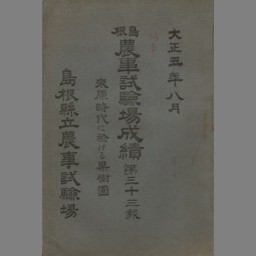 大正五年八月
島根農事試驗場成績第三十三報
來原時代に於ける果樹園
島根縣立農事試驗場